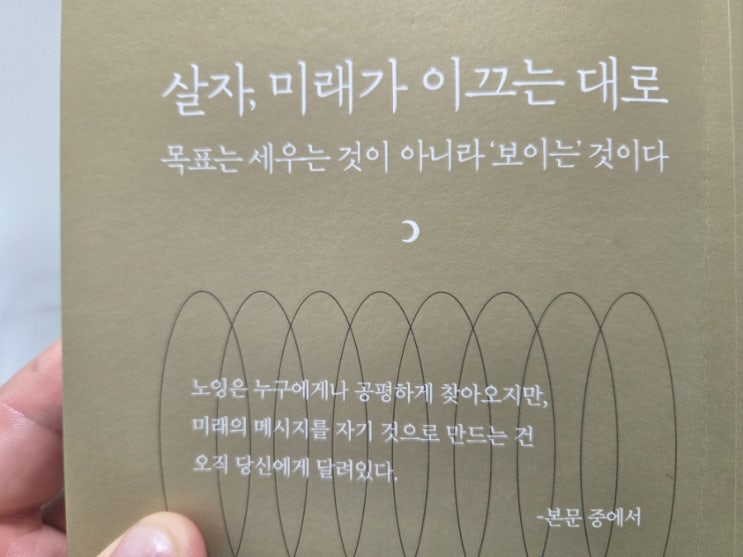 살자, 미래가 이끄는 대로
목표는 세우는 것이 아니라 ‘보이는’ 것이다
노잉은 누구에게나 공평하게 찾아오지만,
미래의 메시지를 자기 것으로 만드는 건
오직 당신에게 달려있다.
-본문 중에서